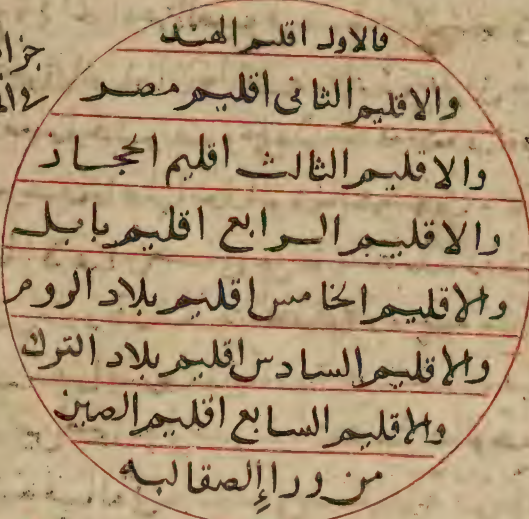 فالاول اقليم الهند
والاقليم الثانى اقليم مصر
والاقليم الثالث اقليم الحجاز
والاقليم الرابع اقليم بابل
والاقليم الخامس اقليم بلاد الروم
والاقليم السادس اقليم بلاد الترك
والاقليم السابع اقليم الصين
من وراإ الصقالبه